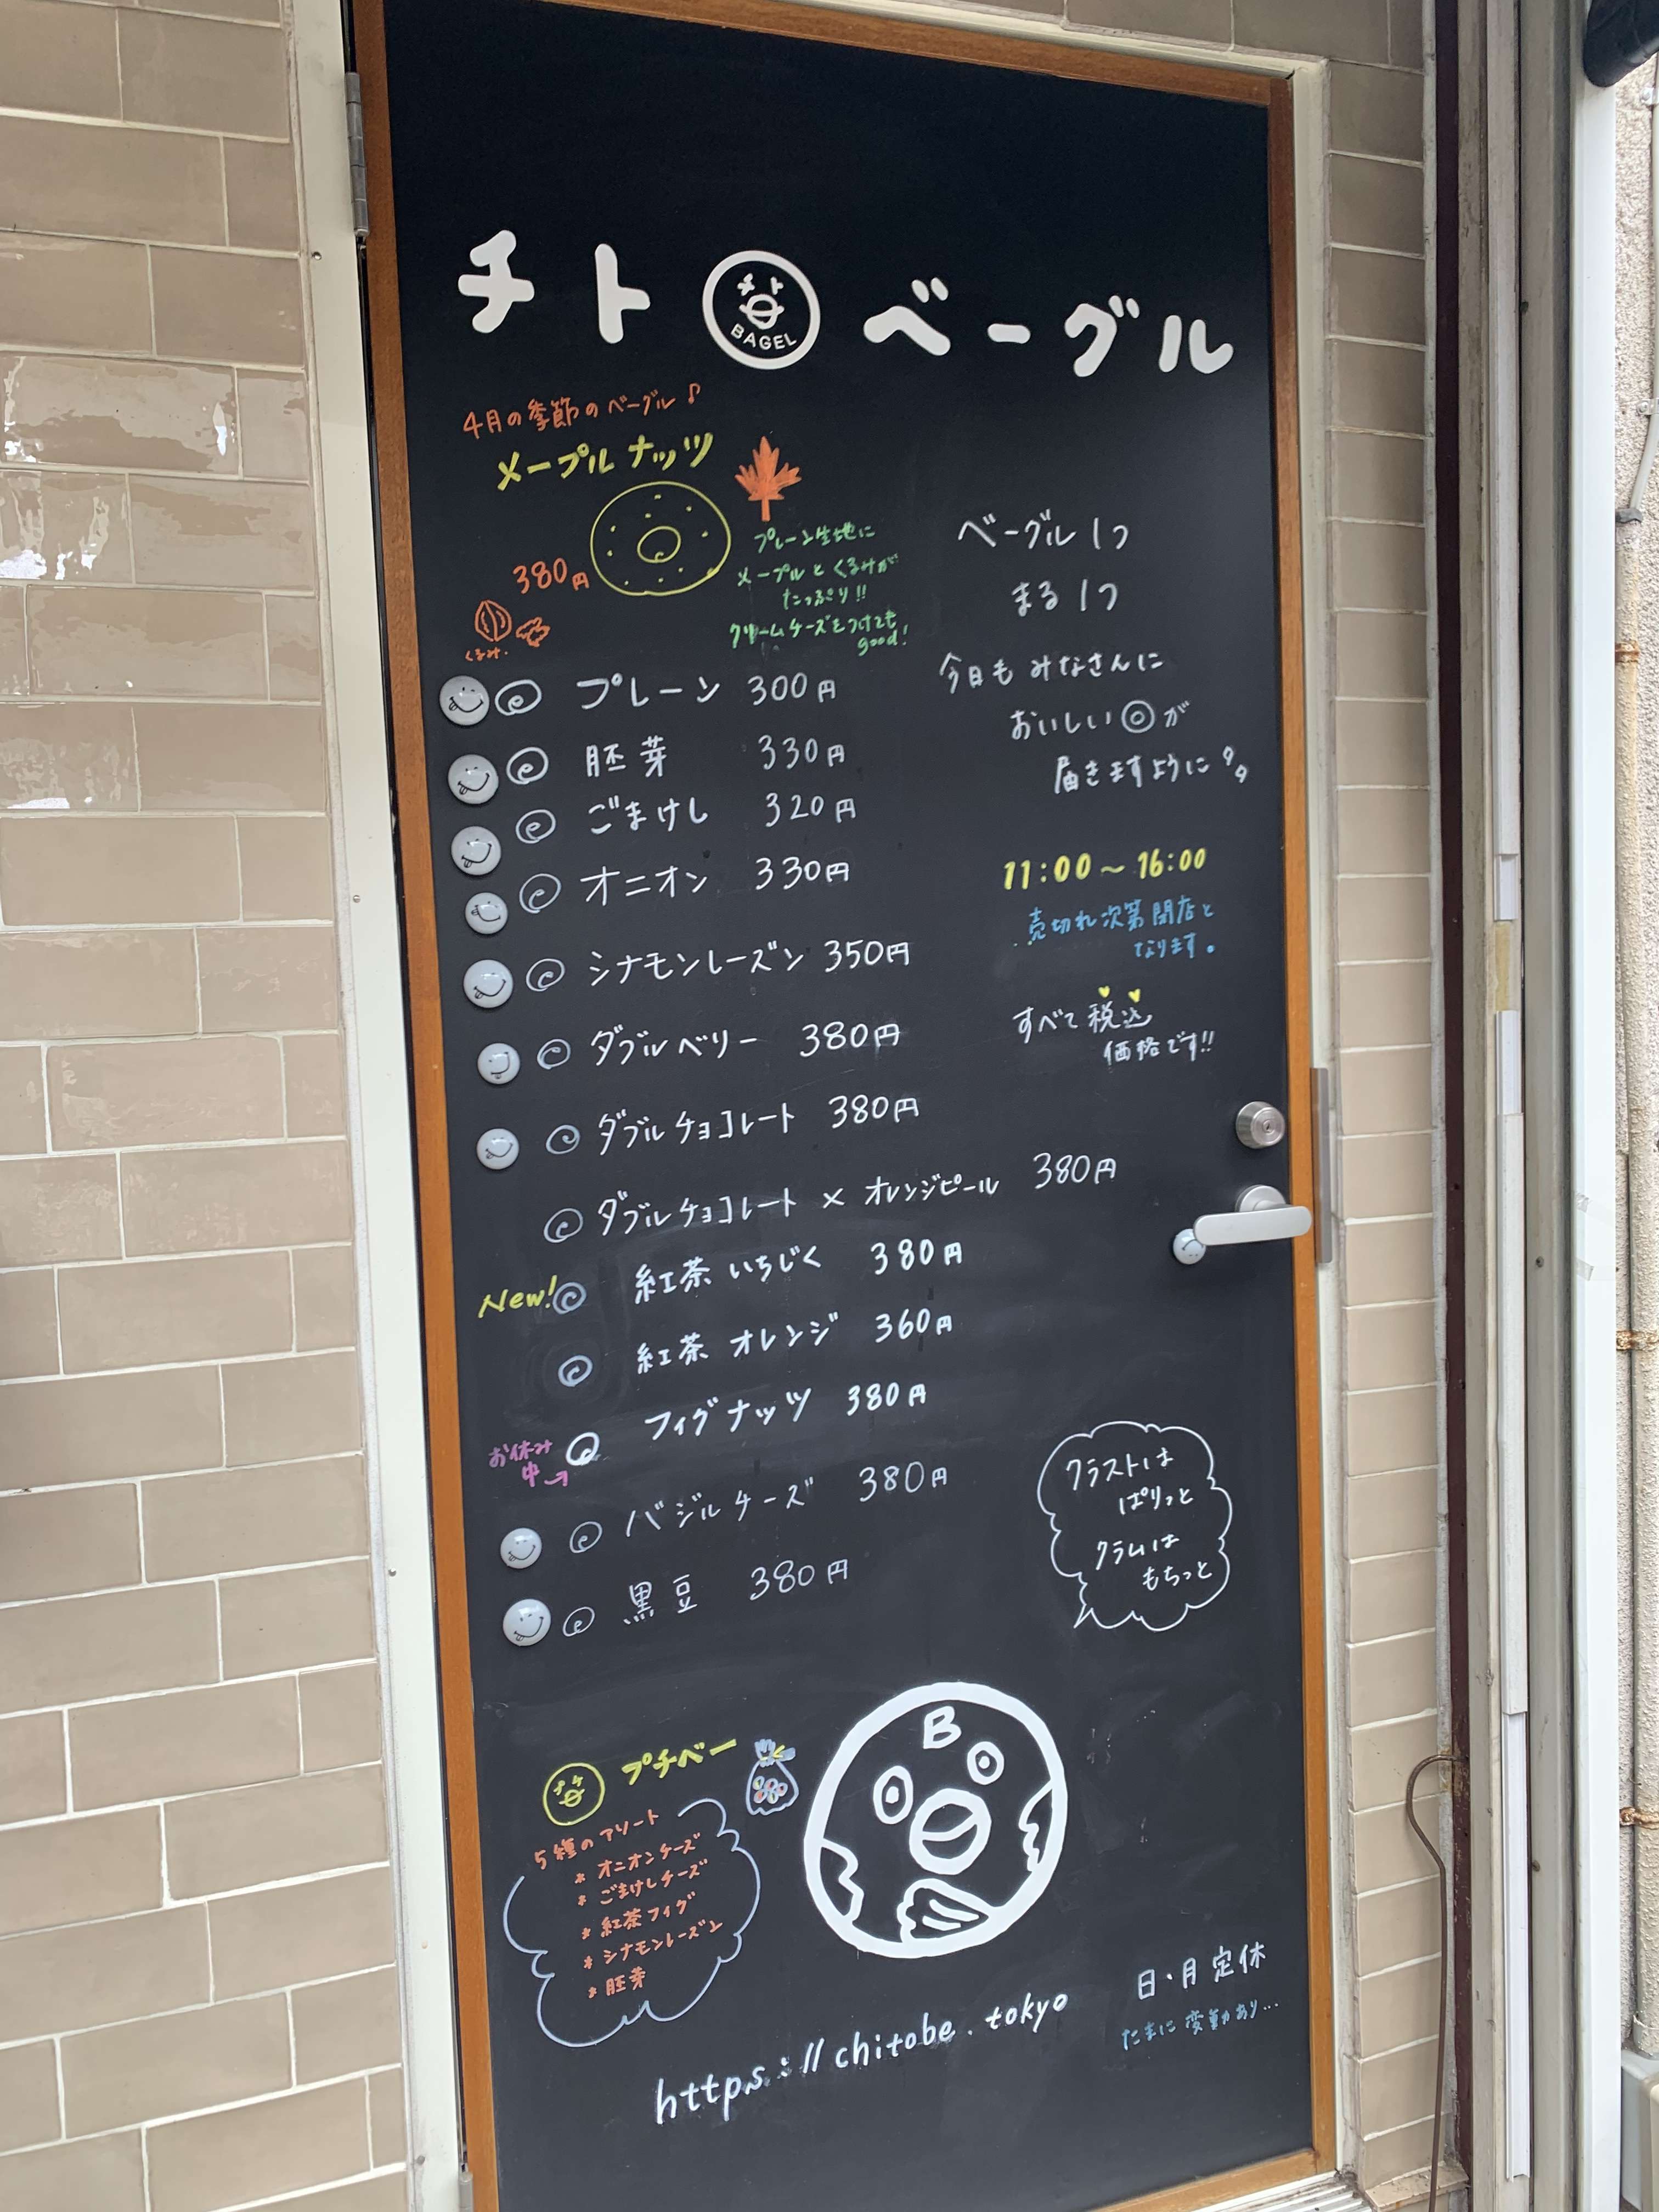 チト ベーグル
チト
BAGEL
4月の季節のベーグル♪
メープルナッツ
380円
くるみ.
プレーン生地に
メープルとくるみが
たっぷり!!
クリームチーズをつけても
good!
ベーグル1つ
まる1つ
今日もみなさんに
おいしい◎が
届きますように
プレーン 300円
胚芽 330円
ごまけし 320円
オニオン 330円
シナモンレーズン 350円
ダブルベリー 380円
ダブルチョコレート 380円
ダブルチョコレート × オレンジピール 380円
New! 紅茶いちじく 380円
紅茶オレンジ 360円
お休み
中→
フィグナッツ 380円
バジルチーズ 380円
黒豆 380円
11:00～16:00
売切れ次第閉店と
なります。
すべて税込
価格です!!
クラストは
ぱりっと
クラムは
もちっと
プチベー
5種のアソート
* オニオンチーズ
* ごまけしチーズ
* 紅茶フィグ
* シナモンレーズン
* 胚芽
B
日・月定休
たまに変動あり…
https://chitobe.tokyo